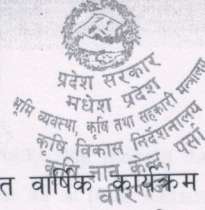 प्रदेश सरकार
मधेश प्रदेश
भूमि व्यवस्था, कृषि तथा सहकारी मन्त्रालय
कृषि विकास निर्देशनालय
कृषि ज्ञान केन्द्र, पर्सा
वीरगंज
त वार्षिक कार्यक्रम